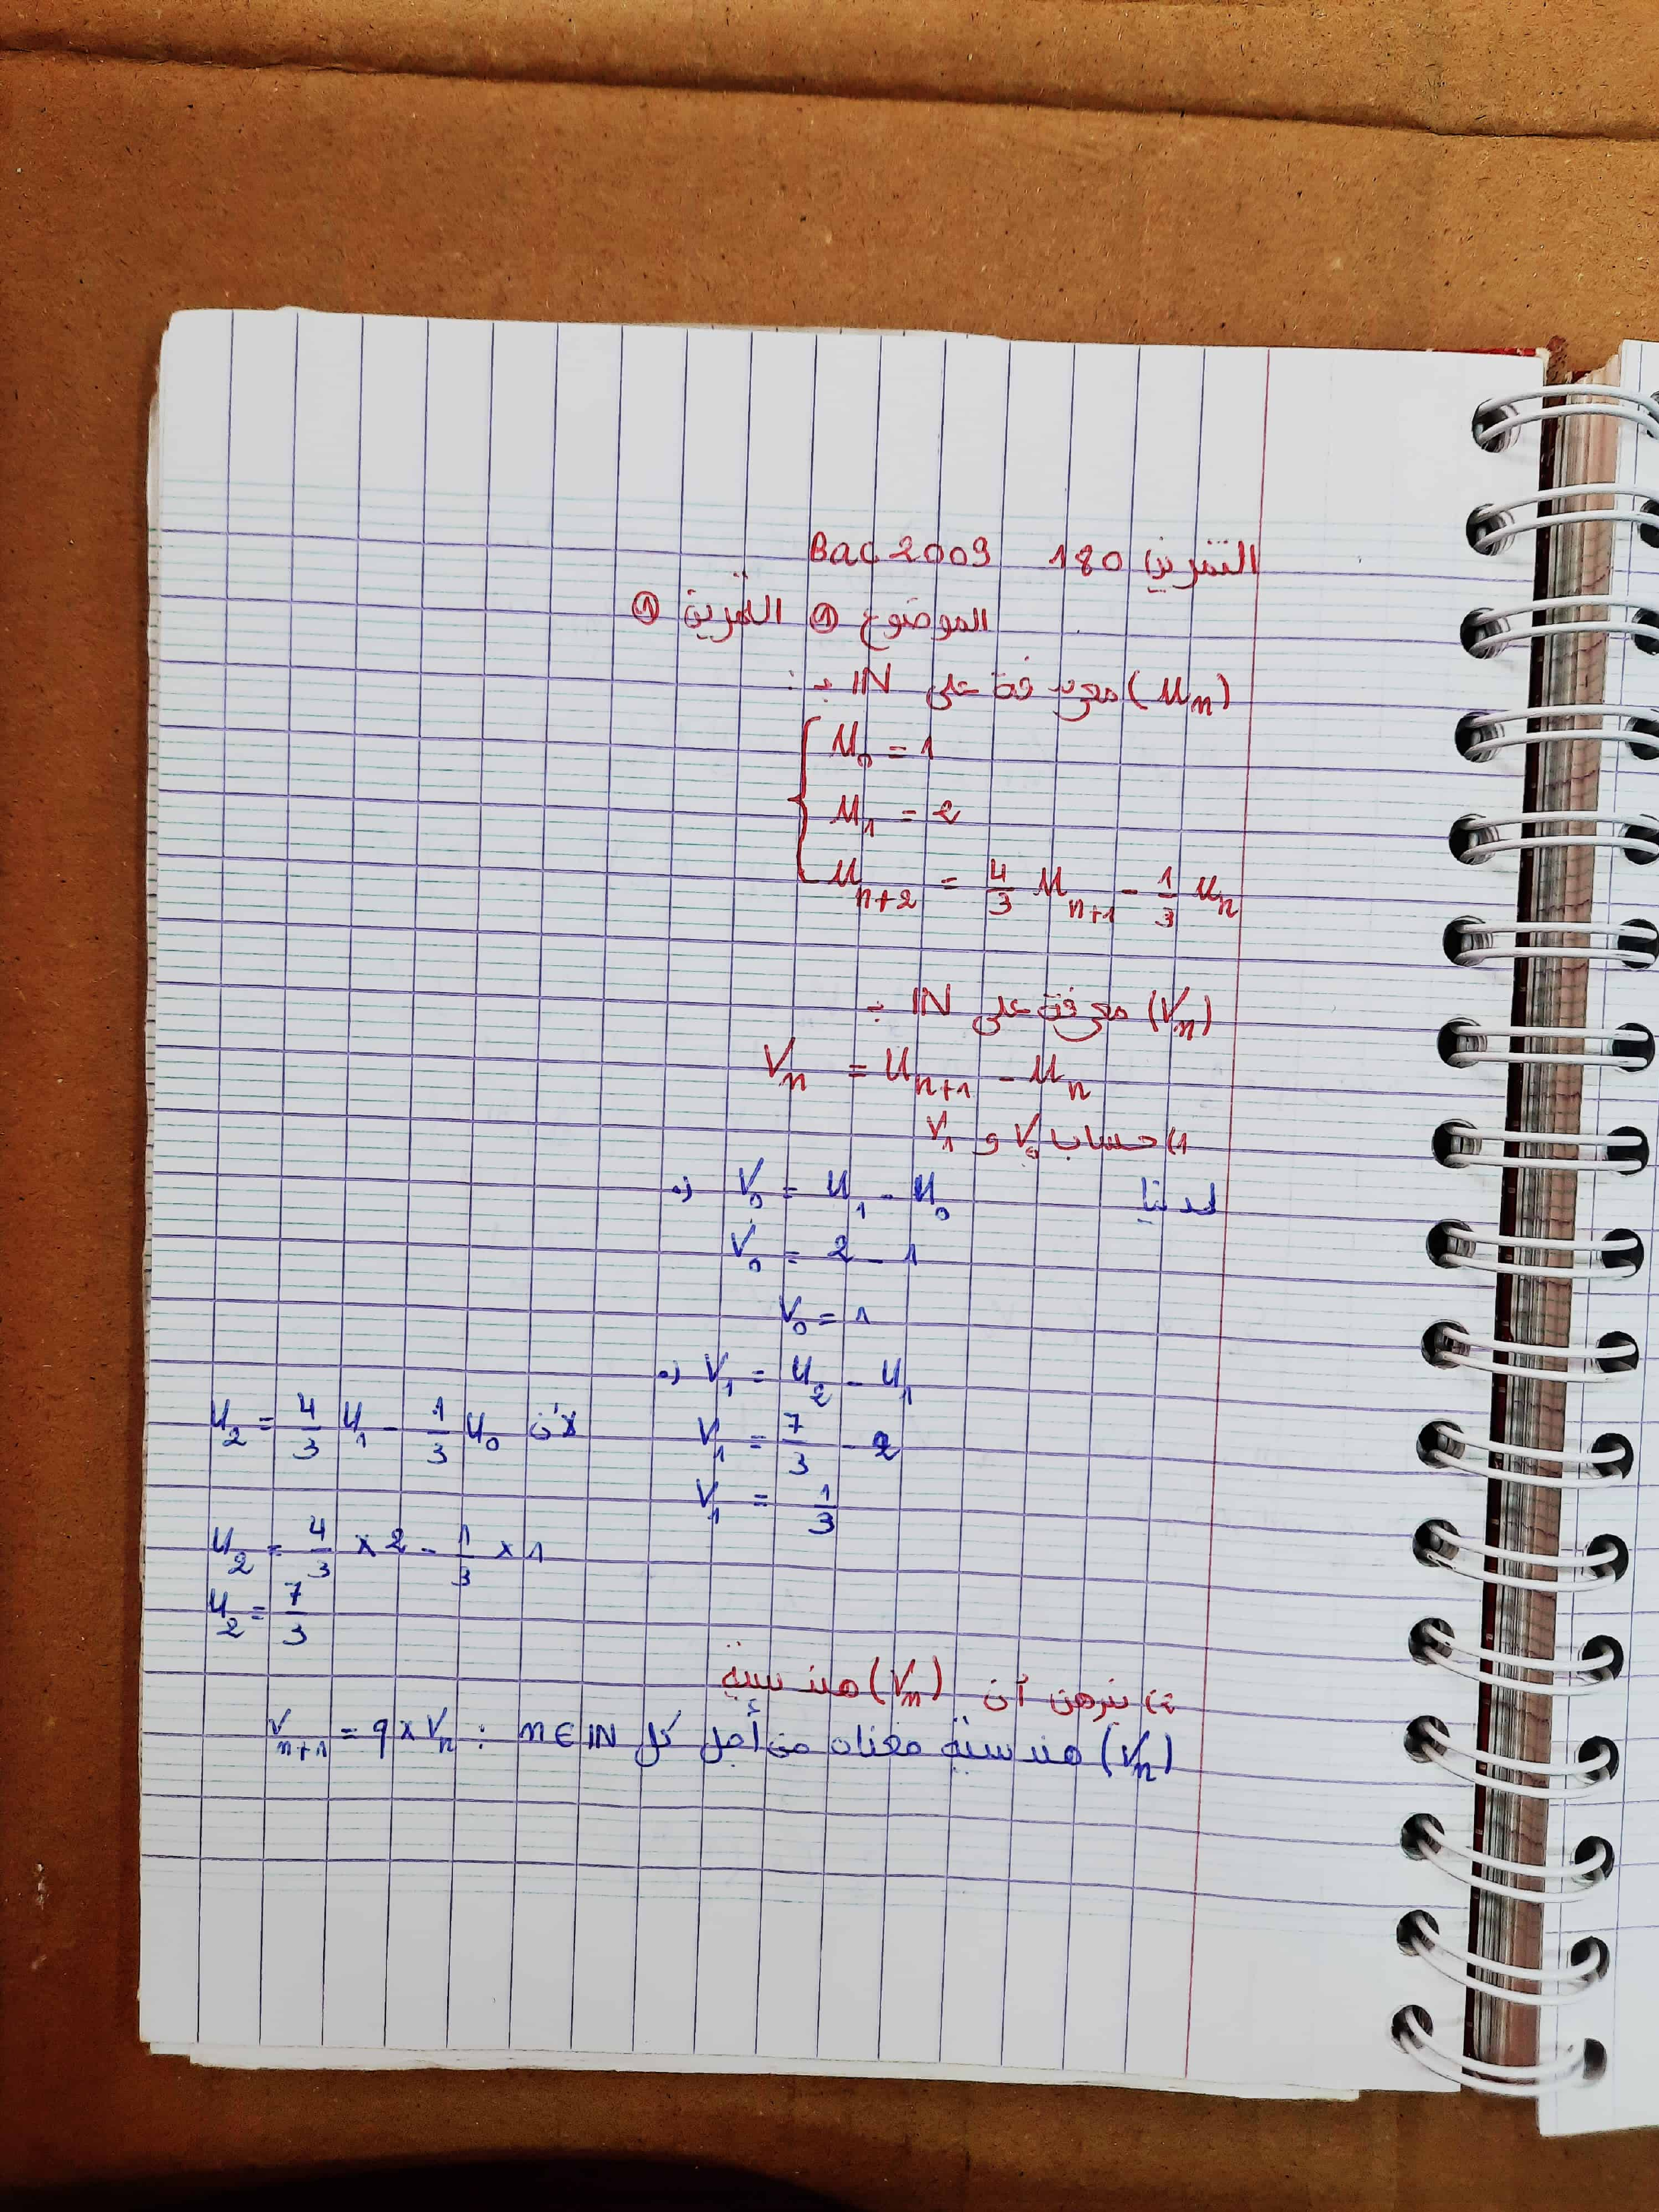 التمرين 180 Bac 2009
الموضوع ① التمرين ①
(Un) معرفة على IN بـ :
U0 = 1
U1 = 2
Un+2 = 4/3 Un+1 - 1/3 Un
(Vn) معرفة على IN بـ
Vn = Un+1 - Un
1) حساب V0 و V1
لدينا
•) V0 = U1 - U0
V0 = 2 - 1
V0 = 1
•) V1 = U2 - U1
V1 = 7/3 - 2
V1 = 1/3
لأن U2 = 4/3 U1 - 1/3 U0
U2 = 4/3 × 2 - 1/3 × 1
U2 = 7/3
2) نبرهن أن (Vn) هندسية
(Vn) هندسية معناه من أجل كل n ∈ IN : Vn+1 = q × Vn